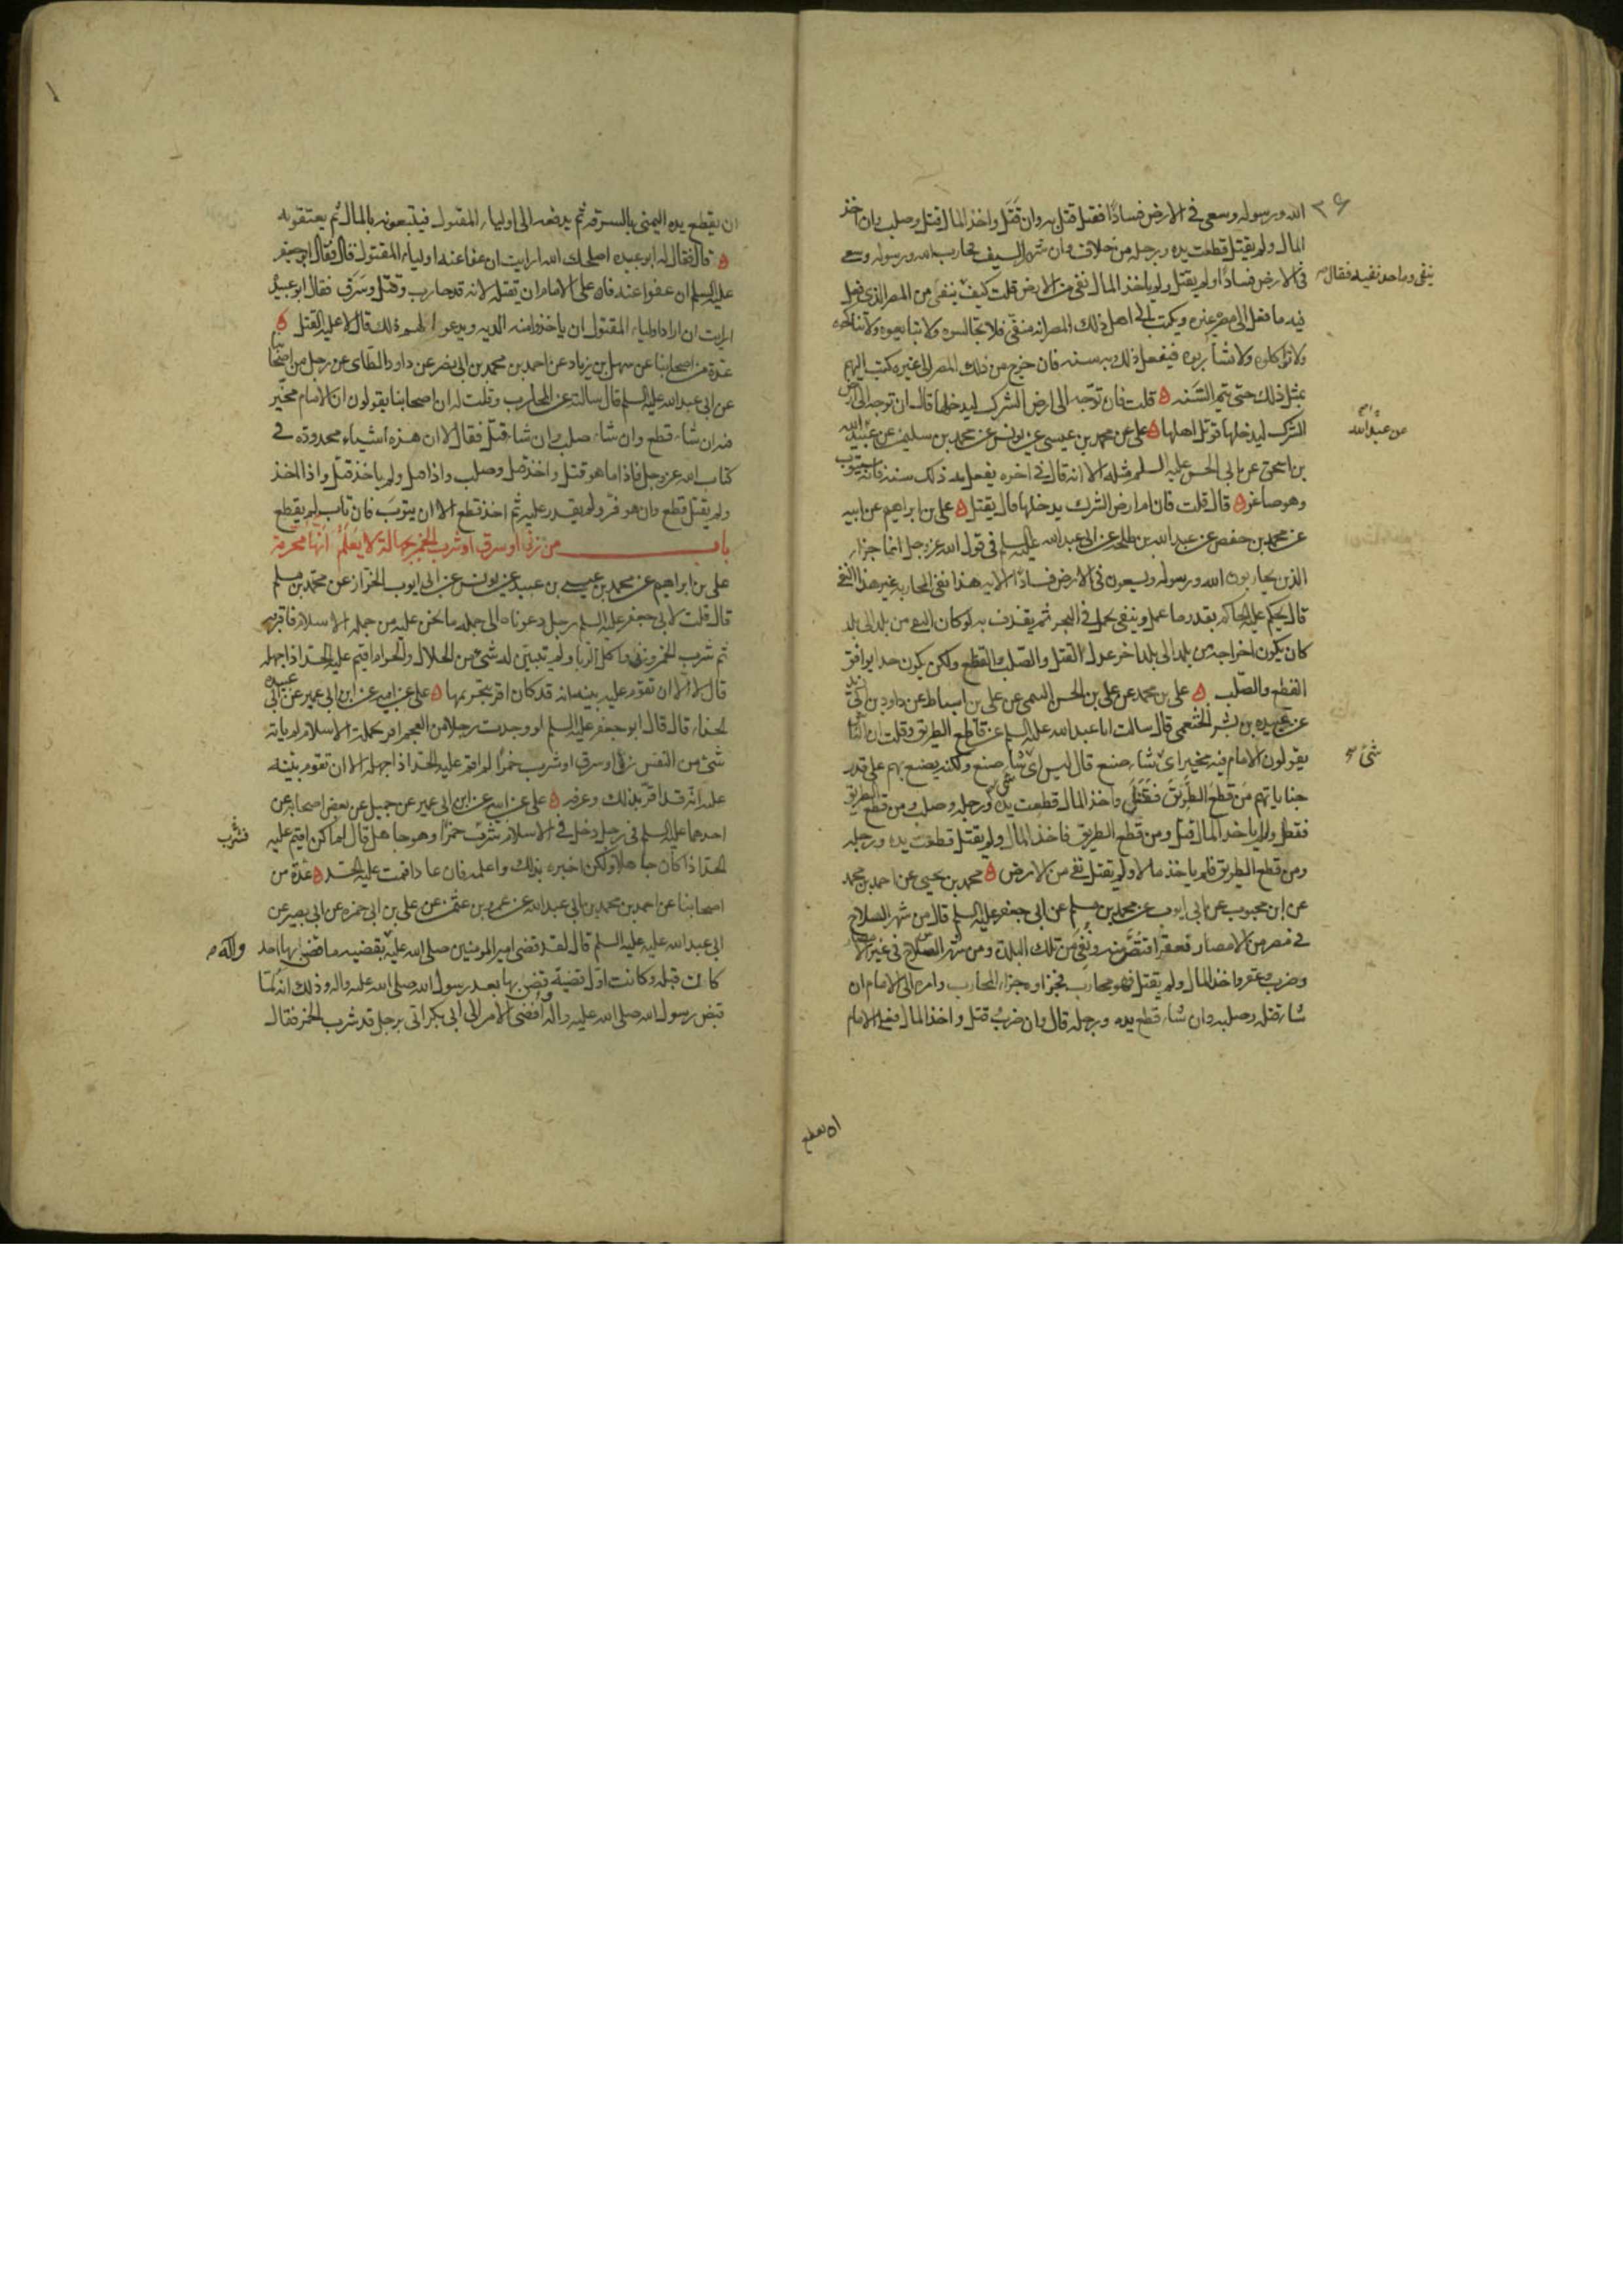 الله ورسوله وسعى في الارض فسادًا فقتل قتل به وان قَتَل واخذ المال قتل وصلب وان اخذ
المال ولم يقتل قطعت يده ورجله من خلاف وان شهر السيف يحارب الله ورسوله وسعى
في الارض فسادًا ولم يقتل ولم ياخذ المال نفى من الارض قلت كيف ينفى من المصر الذي فعل
ينفى وما حد نفيه فقال صح
فيه ما فعل الى مصر غيره ويكتب الى اهل ذلك المصر انه منفيّ فلا تجالسوه ولا تبايعوه ولا تناكحوه
ولا تواكلوه ولا تشاربوه فيفعل ذلك به سنه فان خرج من ذلك المصر الى غيره كتب اليهم
بمثل ذلك حتى تتم السَّنه ه قلت فان توجّه الى ارض الشرك ليدخلها قال ان توجه الى ارض
الشرك ليدخلها قوتل اهلها ه على عن محمد بن عيسى عن يونس عن محمد بن سليمن عن عبيد الله
عن عبد الله
بن اسحق عن ابي الحسن عليه السلم مثله الا انه قال في اخره يفعل به ذلك سنه فانه سيتوب
وهو صاغر ه قال قلت فان ام ارض الشرك يدخلها قال يقتل ه على بن ابراهيم عن ابيه
عن محمد بن حفص عن عبد الله بن طلحه عن ابي عبد الله عليه السلم في قول الله عز وجل انما جزاء
الذين يحاربون الله ورسوله ويسعون في الارض فسادًا الايه هذا نفى المحاربه غير هذا النفى
قال يحكم عليه الحاكم بقدر ما عمل وينفى يحمل في البحر ثم يقذف به لو كان النفى من بلد الى بلد
كان يكون اخراجه من بلد الى بلد اخر عدل القتل والصلب والقطع ولكن يكون حدا يوافق
القطع والصّلب ه على بن محمد عن على بن الحسن التيمى عن على بن اسباط عن داود بن ابي يزيد
عن عبيده بن بشر الخثعمى قال سالت ابا عبد الله عليه السلم عن قاطع الطريق وقلت ان الناس
يقولون الامام فيه مخير اىّ شاء صنع قال ليس اىّ شاء صنع ولكنه يصنع بهم على قدر
شئ صح
جناياتهم مَن قطع الطَريق فقَتَل واخذ المال قطعت يده ورجله وصلب ومن قطع الطريق
فقتل ولم ياخذ المال قتل ومن قطع الطريق فاخذ المال ولم يقتل قطعت يده ورجله
ومن قطع الطريق فلم ياخذ مالا ولم يقتل نفى من الارض ه محمد بن يحيى عن احمد بن محمد
عن ابن محبوب عن ابي ايوب عن محمد بن مسلم عن ابي جعفر عليه السلم قال من شهر السلاح
في مصر من الامصار فعقر اقتُصَّ منه ونُفِى من تلك البلدة ومن شهر السلاح في غير الامصار
وضرب وعقر واخذ المال ولم يقتل فهو محارب فجزاوه جزاء المحارب وامره الى الامام ان
شاء قتله وصلبه وان شاء قطع يده ورجله قال وان ضرب وقتل واخذ المال فعلى الامام
ان يقطع
ان يقطع يده اليمنى بالسرقه ثم يدفعه الى اولياء المقتول فيتبعونه بالمال ثم يقتلونه
ه قال فقال له ابو عبيده اصلحك الله ارايت ان عفا عنه اولياء المقتول قال فقال ابو جعفر
عليه السلم ان عفوا عنه فان على الامام ان يقتله لانه قد حارب وقتل وسَرَق فقال ابو عبيدة
ارايت ان اراد اولياء المقتول ان ياخذوا منه الديه ويدعوه الهم ذلك قال لا عليه القتل ه
عدة من اصحابنا عن سهل بن زياد عن احمد بن محمد بن ابي نصر عن داود الطاى عن رجل من اصحابنا
عن ابي عبد الله عليه السلم قال سالته عن المحارب وقلت له ان اصحابنا يقولون ان الامام مخيّر
فيه ان شاء قطع وان شاء صلب وان شاء قتل فقال لا ان هذه اشياء محدوده في
كتاب الله عز وجل فاذا ما هو قتل واخذ قتل وصلب واذا قتل ولم ياخذ قتل واذا اخذ
ولم يقتل قطع وان هو فرّ ولم يقدر عليه ثم اخذ قطع الا ان يتوبَ فان تاب لم يقطع
باب من زنى او سرق او شرب الخمر بجهالة لا يَعلَمُ انّها محرمة
على بن ابراهيم عن محمد بن عيسى بن عبيد عن يونس عن ابي ايوب الخزاز عن محمد بن مسلم
قال قلت لابي جعفر عليه السلم رجل دعوناه الى جمله ما نحن عليه من جمله الاسلام فاقر به
ثم شرب الخمر وزنى واكل الربا ولم تبين له شئ من الحلال والحرام اقيم عليه الحدّ اذا جهله
قال لا الا ان تقوم عليه بينه انه قد كان اقر بتحريمها ه على عن ابيه عن ابن ابي عمير عن ابي عبيده
الحذاء قال قال ابو جعفر عليه السلم لو وجدت رجلا من العجم اقر بجملة الاسلام لم ياته
شئ من التفسير زنى او سرق او شرب خمرًا لم اقم عليه الحدّ اذا جهله الا ان تقوم بينه
عليه انّه قد اقرّ بذلك وعرفه ه على عن ابيه عن ابن ابي عمير عن جميل عن بعض اصحابه عن
احدهما عليه السلم في رجل دخل في الاسلام شرب خمرًا وهو جاهل قال لم اكن اقيم عليه
فشرب
الحدّ اذا كان جاهلا ولكن اخبره بذلك واعلمه فان عاد اقمت عليه الحد ه عدة من
اصحابنا عن احمد بن محمد بن ابي عبد الله عن عمرو بن عثمن عن على بن ابي حمزه عن ابي بصير عن
ابي عبد الله عليه عليه السلم قال لقد قضى امير المومنين صلى الله عليه بقضيه ما قضى بها احد
وآله صح
كان قبله وكانت اوّل قضية قضى بها بعد رسول الله صلى الله عليه واله وذلك انه لمّا
قبض رسول الله صلى الله عليه واله وأفضى الامر الى ابي بكر اتى برجل قد شرب الخمر فقال